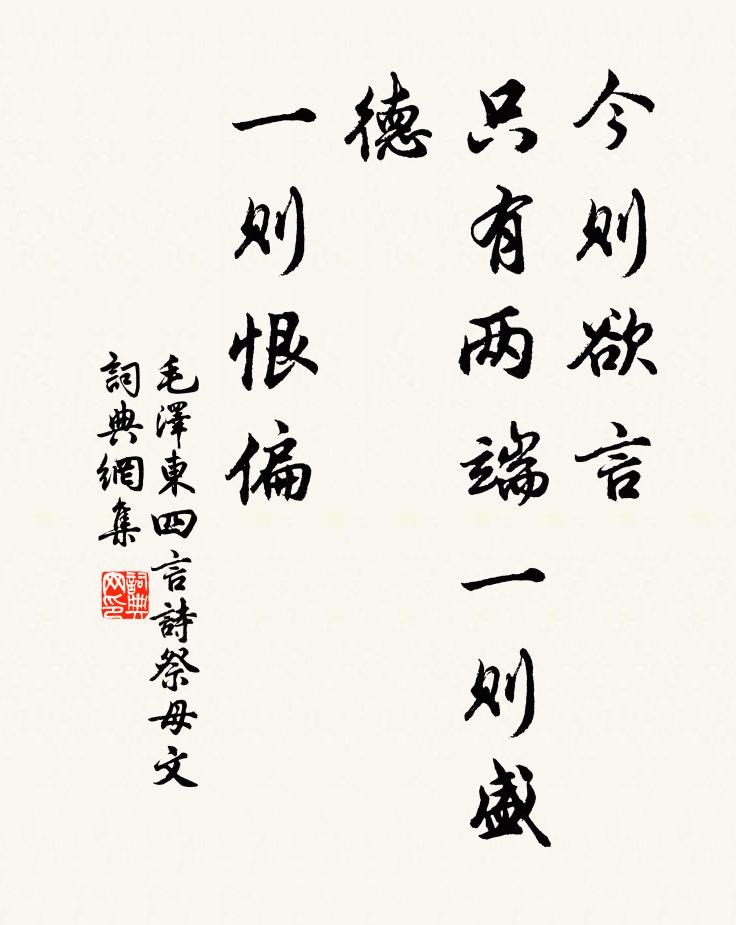 今则欲言
只有两端一则盛
德
一则恨偏
毛澤東四言詩祭母文
詞典網集
詞典
网印